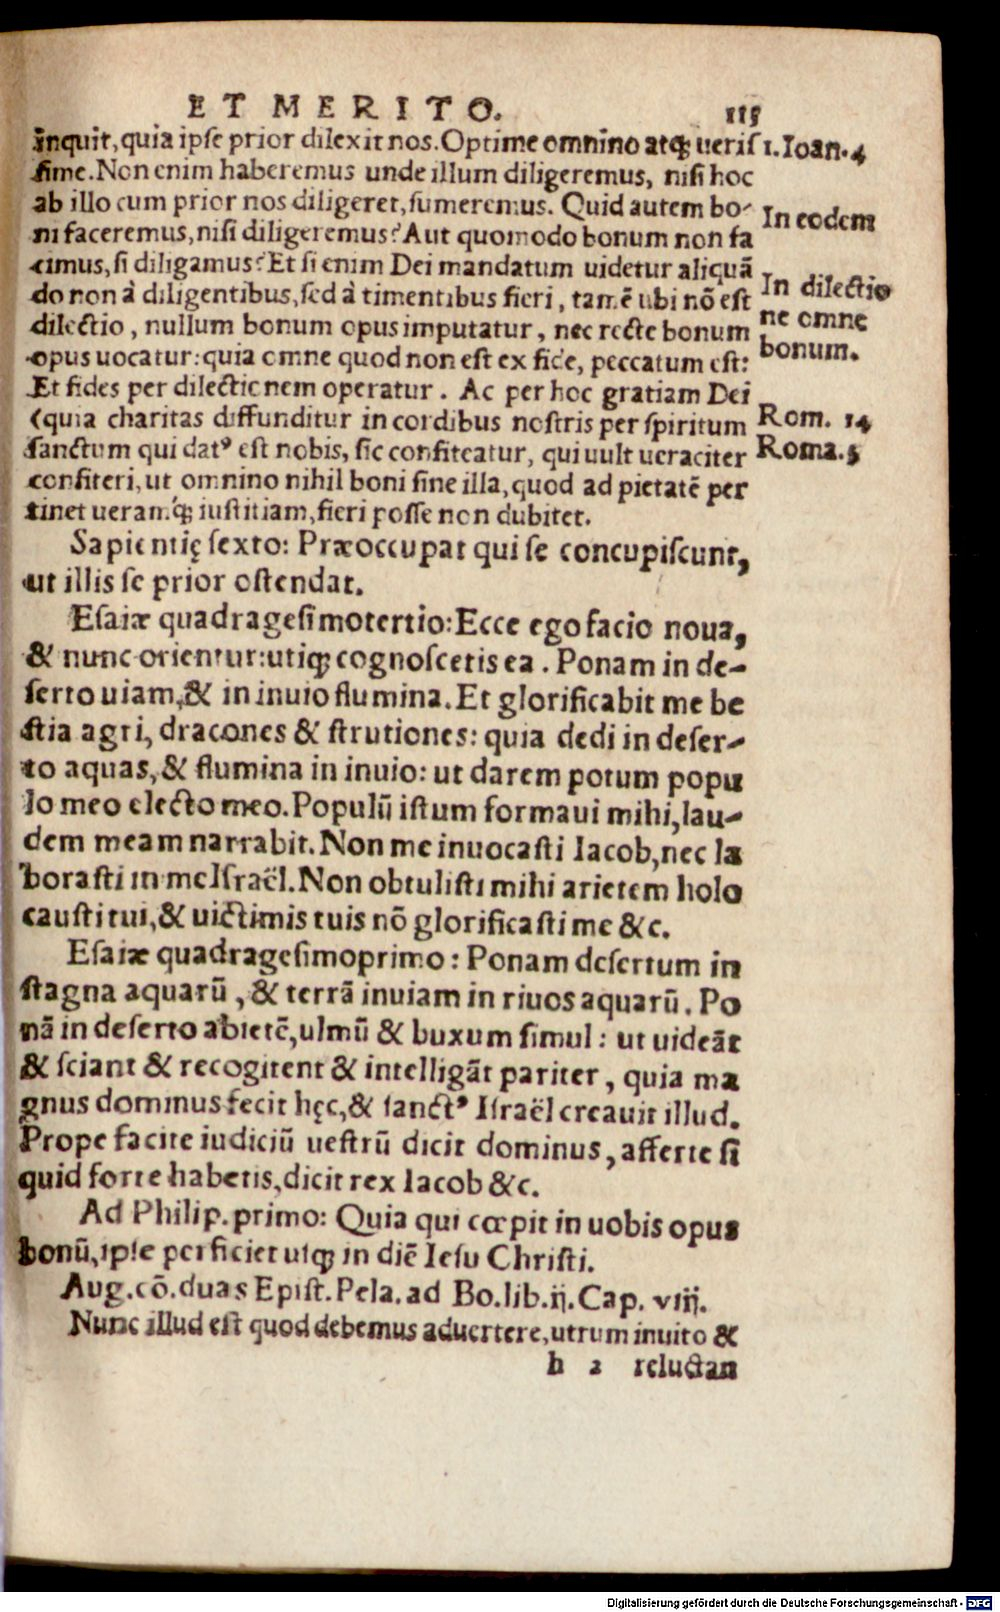 ET MERITO. 115
inquit, quia ipse prior dilexit nos. Optime omnino atq; ueris
1. Ioan. 4
sime. Non enim haberemus unde illum diligeremus, nisi hoc
ab illo cum prior nos diligeret, sumeremus. Quid autem bo-
In eodem
ni faceremus, nisi diligeremus? Aut quomodo bonum non fa
cimus, si diligamus? Et si enim Dei mandatum uidetur aliquā
do non à diligentibus, sed à timentibus fieri, tamē ubi nō est
In dilectio
dilectio, nullum bonum opus imputatur, nec recte bonum
ne omne
opus uocatur: quia omne quod non est ex fide, peccatum est:
bonum.
Et fides per dilectionem operatur. Ac per hoc gratiam Dei
(quia charitas diffunditur in cordibus nostris per spiritum
Rom. 14
sanctum qui datꝰ est nobis, sic confiteatur, qui uult ueraciter
Roma. 5
confiteri, ut omnino nihil boni sine illa, quod ad pietatē per
tinet ueramq́; iustitiam, fieri posse non dubitet.
Sapientię sexto: Præoccupat qui se concupiscunt,
ut illis se prior ostendat.
Esaiæ quadragesimotertio: Ecce ego facio noua,
& nunc orientur: utiq; cognoscetis ea. Ponam in de-
serto uiam, & in inuio flumina. Et glorificabit me be
stia agri, dracones & strutiones: quia dedi in deser-
to aquas, & flumina in inuio: ut darem potum popu
lo meo electo meo. Populū istum formaui mihi, lau-
dem meam narrabit. Non me inuocasti Iacob, nec la
borasti in me Israël. Non obtulisti mihi arietem holo
causti tui, & uictimis tuis nō glorificasti me &c.
Esaiæ quadragesimoprimo: Ponam desertum in
stagna aquarū, & terrā inuiam in riuos aquarū. Po
nā in deserto abietē, ulmū & buxum simul: ut uideāt
& sciant & recogitent & intelligāt pariter, quia ma
gnus dominus fecit hęc, & sanctꝰ Israël creauit illud.
Prope facite iudiciū uestrū dicit dominus, afferte si
quid forte habetis, dicit rex Iacob &c.
Ad Philip. primo: Quia qui cœpit in uobis opus
bonū, ipse perficiet usq; in diē Iesu Christi.
Aug. cō. duas Epist. Pela. ad Bo. lib. ij. Cap. viij.
Nunc illud est quod debemus aduertere, utrum inuito &
h 2 reluctan
Digitalisierung gefördert durch die Deutsche Forschungsgemeinschaft - DFG